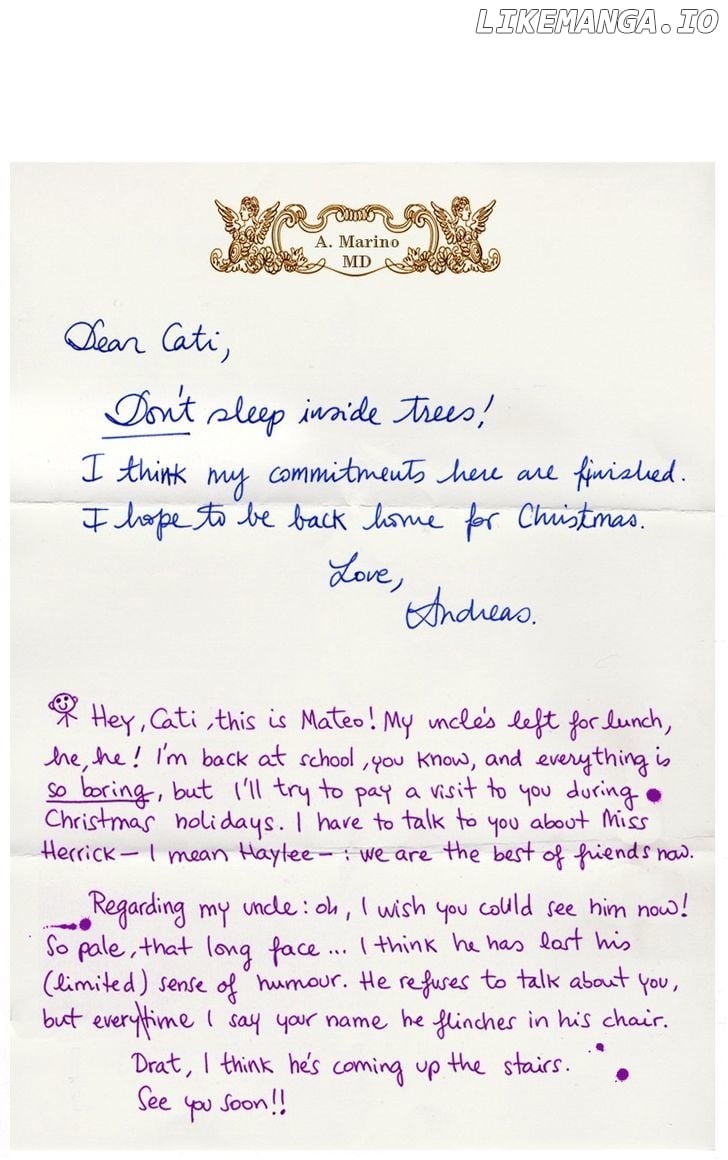 LIKEMANGA.IO
A. Marino
MD
Dear Cati,
Don't sleep inside trees!
I think my commitments here are finished.
I hope to be back home for Christmas.
Love,
Andreas.
Hey, Cati, this is Mateo! My uncle's left for lunch,
he, he! I'm back at school, you know, and everything is
so boring, but I'll try to pay a visit to you during
Christmas holidays. I have to talk to you about Miss
Herrick — I mean Haylee — : we are the best of friends now.
Regarding my uncle: oh, I wish you could see him now!
So pale, that long face... I think he has lost his
(limited) sense of humour. He refuses to talk about you,
but everytime I say your name he flinches in his chair.
Drat, I think he's coming up the stairs.
See you soon!!